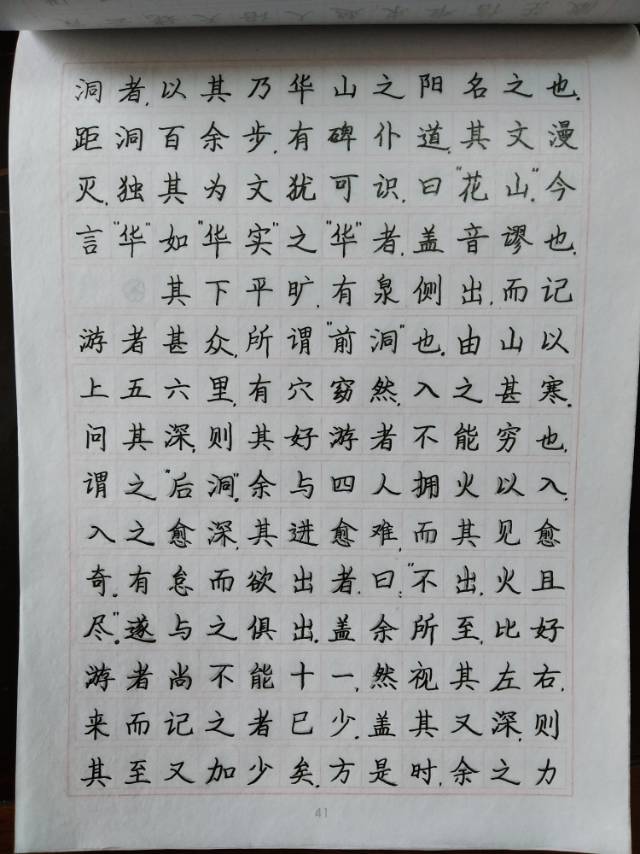 洞者,以其乃华山之阳名之也.
距洞百余步,有碑仆道,其文漫
灭,独其为文犹可识,曰"花山".今
言"华"如"华实"之"华"者,盖音谬也.
其下平旷,有泉侧出,而记
游者甚众,所谓"前洞"也.由山以
上五六里,有穴窈然,入之甚寒.
问其深,则其好游者不能穷也,
谓之"后洞".余与四人拥火以入.
入之愈深,其进愈难,而其见愈
奇.有怠而欲出者,曰:"不出,火且
尽".遂与之俱出.盖余所至,比好
游者尚不能十一,然视其左右,
来而记之者已少.盖其又深,则
其至又加少矣.方是时,余之力
41